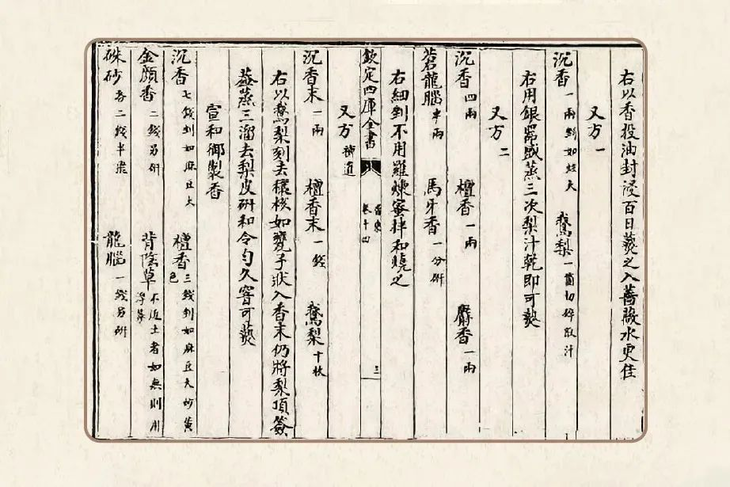 右以香投油封浸百日爇之入薔薇水更佳
又方一
沉香一兩剉如炷大 鵞梨一箇切碎取汁
右用銀器盛蒸三次梨汁乾即可爇
又方二
沉香四兩 檀香一兩 麝香一兩
茗龍腦半兩 馬牙香一分研
右細剉不用羅煉蜜拌和燒之
欽定四庫全書 香乘 卷十四 三
又方補遺
沉香末一兩 檀香末一錢 鵞梨十枚
右以鵞梨刻去穰核如甕子狀入香末仍將梨頂簽
葢蒸三溜去梨皮研和令勻久窨可爇
宣和御製香
沉香七錢剉如麻豆大 檀香三錢剉如麻豆大炒黃色
金顏香二錢另研 背陰草不近土者如無則用浮萍
硃砂各二錢半飛 龍腦一錢另研